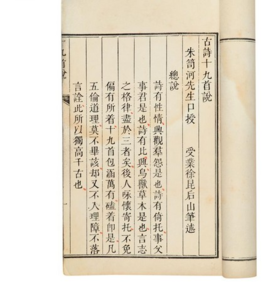 古詩十九首說
朱笥河先生口授　受業徐昆后山筆述
總說
詩有性情興觀羣怨是也詩有倚托事父
事君是也詩有比興鳥獸草木是也言志
之格律盡於三者矣後人咏懷寄托不免
偏有所着十九首包涵萬有磕着即是凡
五倫道理莫不畢該却又不入理障不落
言詮此所以獨高千古也